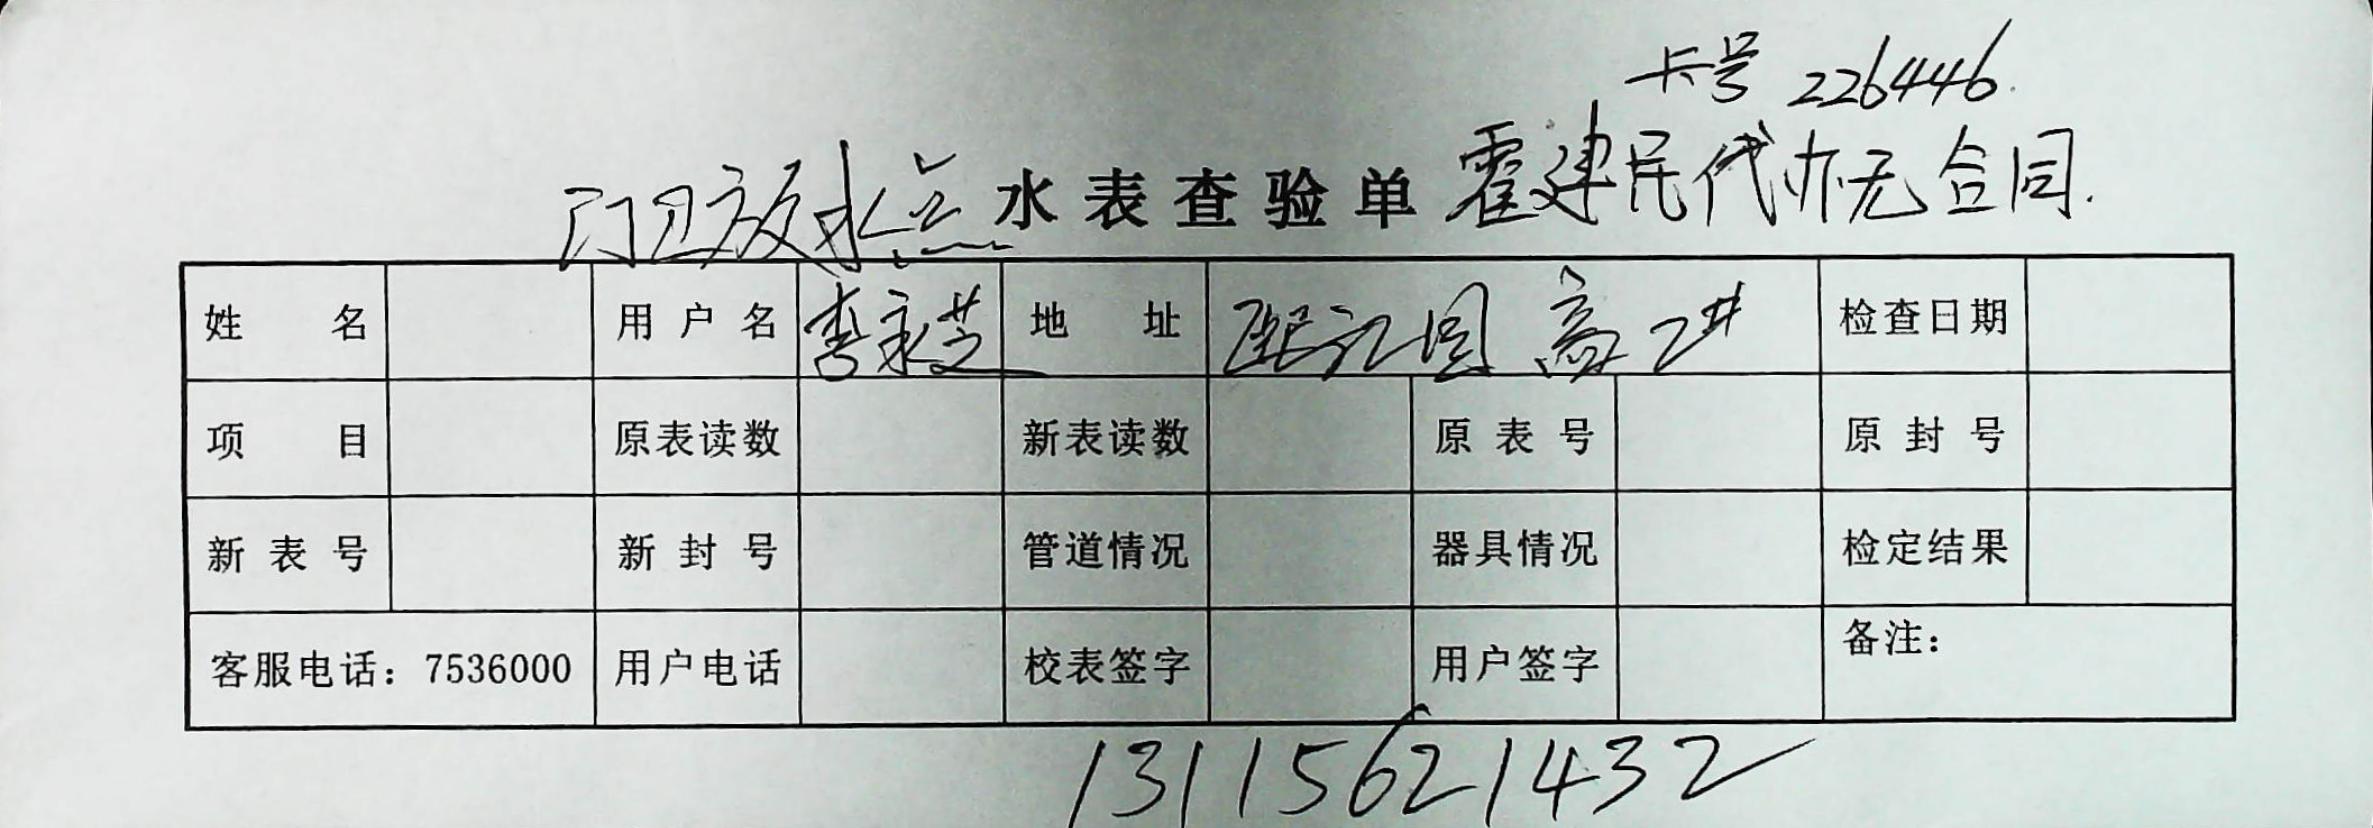 卡号 226446.
门卫放水点 水表查验单 霍建民代办无合同.
姓名 用户名 李永芝 地址 熙江园 高2# 检查日期
项目 原表读数 新表读数 原表号 原封号
新表号 新封号 管道情况 器具情况 检定结果
客服电话：7536000 用户电话 校表签字 用户签字 备注：
13115621432